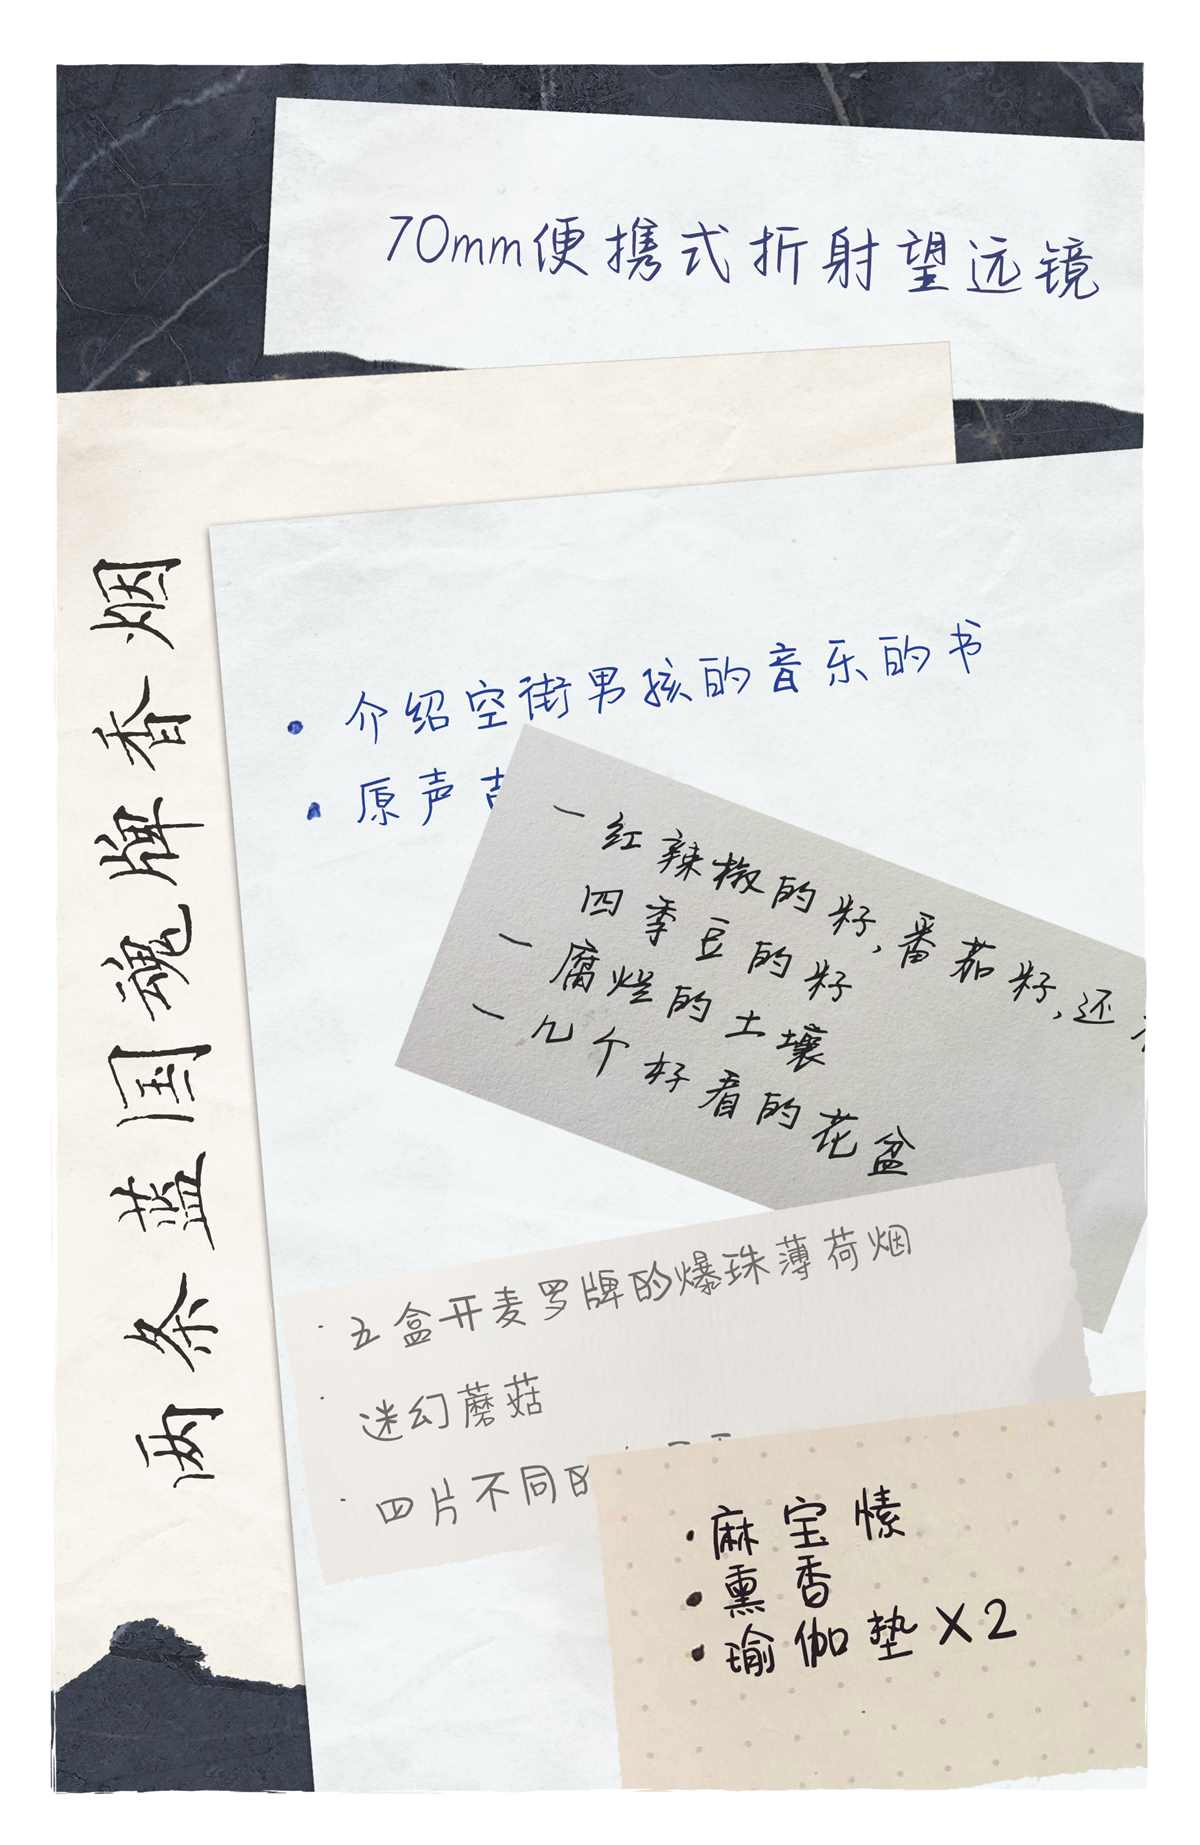 70mm便携式折射望远镜
两条蓝国魂牌香烟
• 介绍空街男孩的音乐的书
• 原声
一 红辣椒的籽，番茄籽，还
四季豆的籽
一 腐烂的土壤
一 几个好看的花盆
· 五盒开麦罗牌的爆珠薄荷烟
· 迷幻蘑菇
· 四片不同
· 麻宝愫
• 熏香
• 瑜伽垫 X2